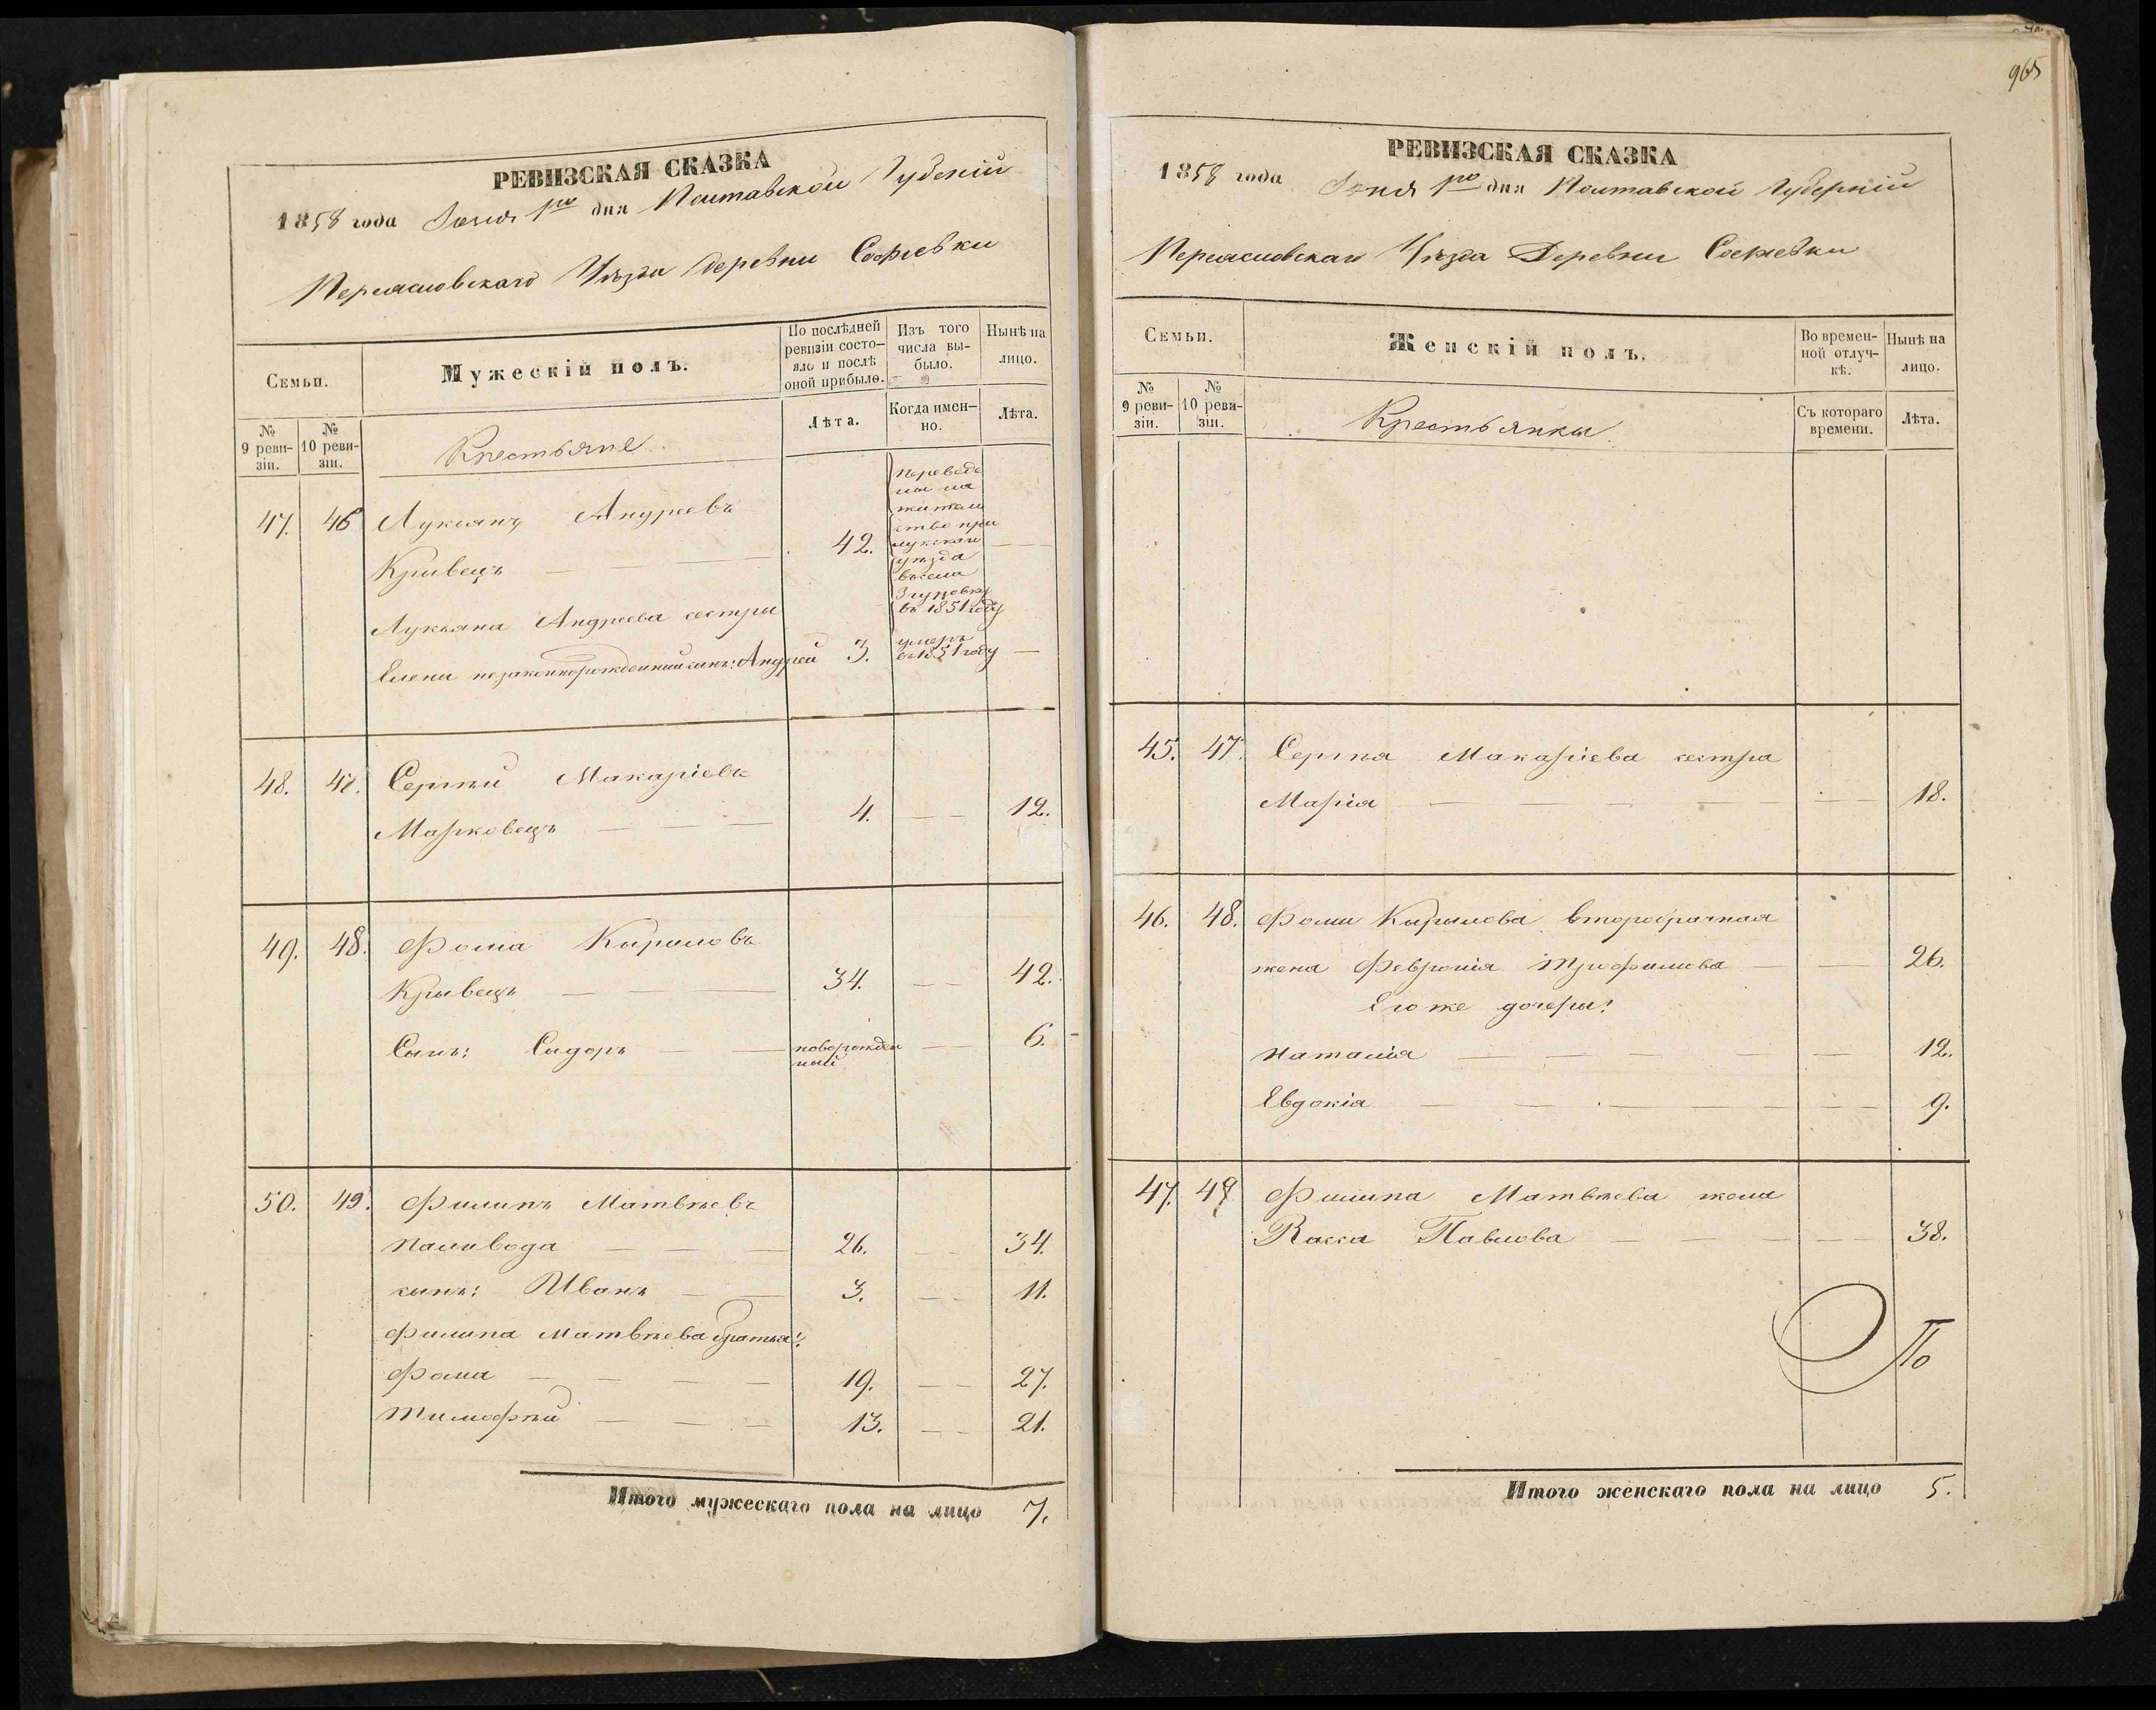 РЕВИЗСКАЯ СКАЗКА
1858 года Іюня 1го дня Полтавской Губерніи
Переяславскаго Уѣзда деревни Софіевки
Семьи.
Мужескій полъ.
По послѣдней ревизіи состояло и послѣ оной прибыло.
Изъ того числа выбыло.
Нынѣ на лицо.
№ 9 ревизіи.
№ 10 ревизіи.
Крестьяне
Лѣта.
Когда именно.
Лѣта.
47. 46 Лукьянъ Андреевъ
Кривецъ 42.
переведе
ны на
жител
ство при
лукскаго
уѣзда
въ 1851 году
Лукьяна Андреева сестры
Елены незаконнорожденный сынъ: Андрей 3. умеръ
въ 1851 году
48. 47. Сергѣй Макаріевъ
Марковецъ 4. 12.
49. 48. Фома Кириловъ
Кривецъ 34. 42.
Сынъ: Сидоръ новорожден
ный 6.
50. 49. Филипъ Матвѣевъ
Паливода 26. 34.
сынъ: Иванъ 3. 11.
Филипа Матвѣева братья:
Фома 19. 27.
Тимофѣй 13. 21.
Итого мужескаго пола на лицо 7.
965
РЕВИЗСКАЯ СКАЗКА
1858 года Іюня 1го дня Полтавской Губерніи
Переяславскаго Уѣзда Деревни Софіевки
Семьи.
Женскій полъ.
Во временной отлучкѣ.
Нынѣ на лицо.
№ 9 ревизіи.
№ 10 ревизіи.
Крестьянки
Съ котораго времени.
Лѣта.
45. 47. Сергѣя Макаріева сестра
Марія 18.
46. 48. Фомы Кирылова второбрачная
жена Февронія Трофимова 26.
Его же дочеры:
Наталія 12.
Евдокія 9.
47. 49 Филипа Матвѣева жена
Васса Павлова 38.
По
Итого женскаго пола на лицо 5.